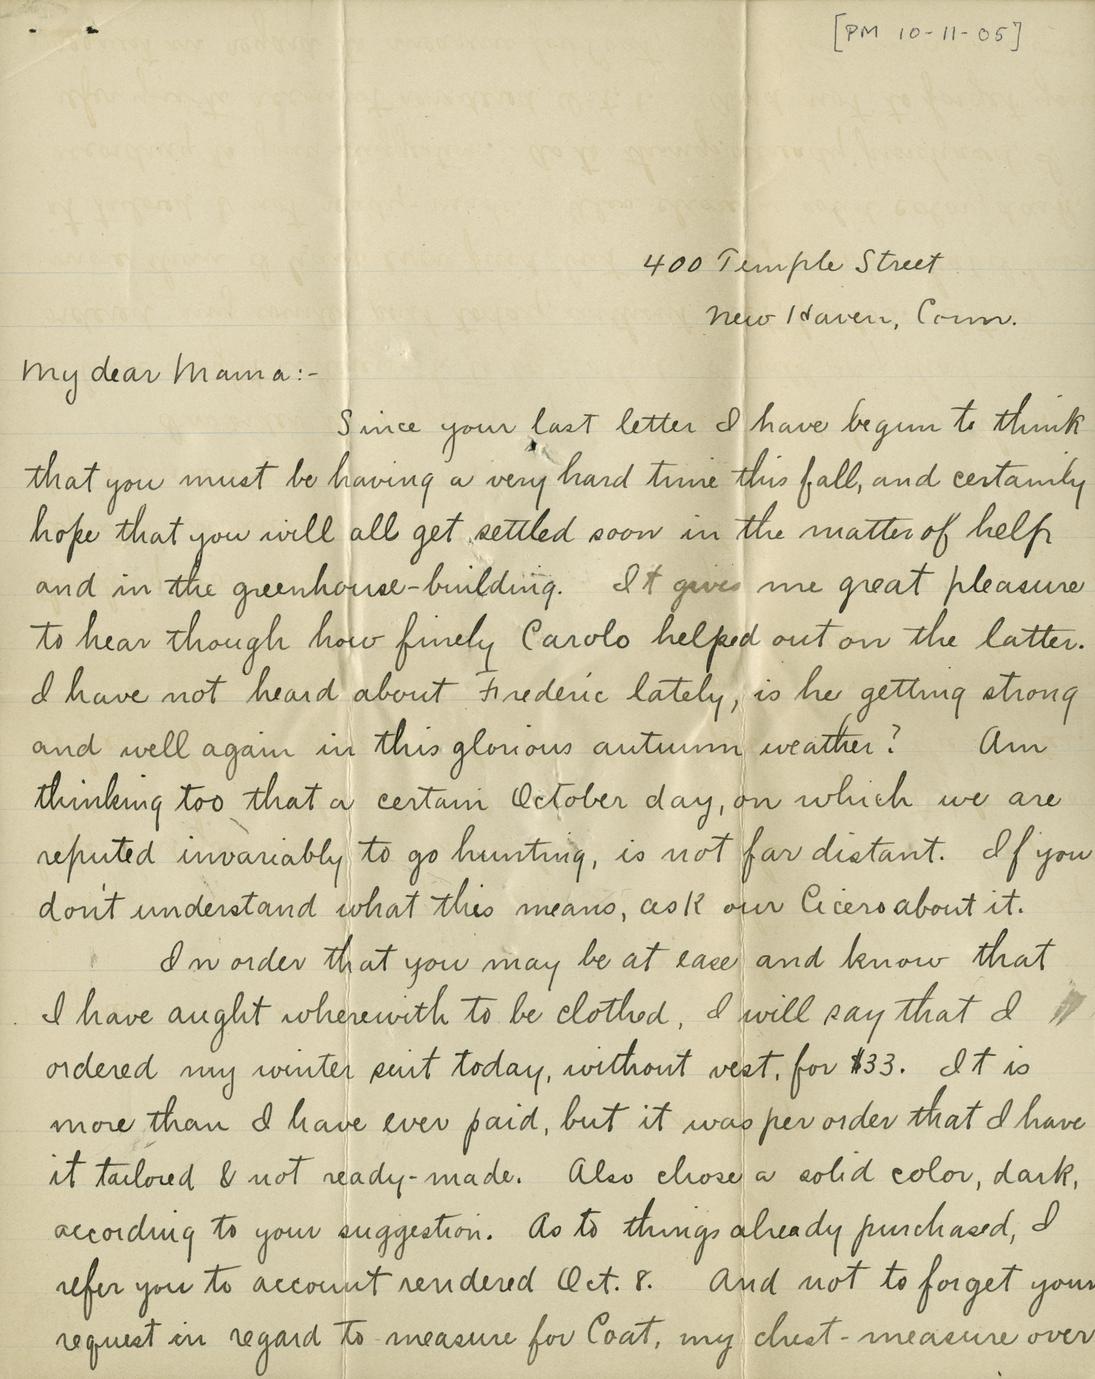 [PM 10-11-05]
400 Temple Street
New Haven, Conn.
My dear Mama:-
Since your last letter I have begun to think
that you must be having a very hard time this fall, and certainly
hope that you will all get settled soon in the matter of help
and in the greenhouse-building. It gives me great pleasure
to hear though how finely Carolo helped out on the latter.
I have not heard about Frederic lately, is he getting strong
and well again in this glorious autumn weather? Am
thinking too that a certain October day, on which we are
reputed invariably to go hunting, is not far distant. If you
don't understand what this means, ask our Cicero about it.
In order that you may be at ease and know that
I have aught wherewith to be clothed, I will say that I
ordered my winter suit today, without vest, for $33. It is
more than I have ever paid, but it was per order that I have
it tailored & not ready-made. Also chose a solid color, dark,
according to your suggestion. As to things already purchased, I
refer you to account rendered Oct. 8. And not to forget your
request in regard to measure for Coat, my chest-measure over